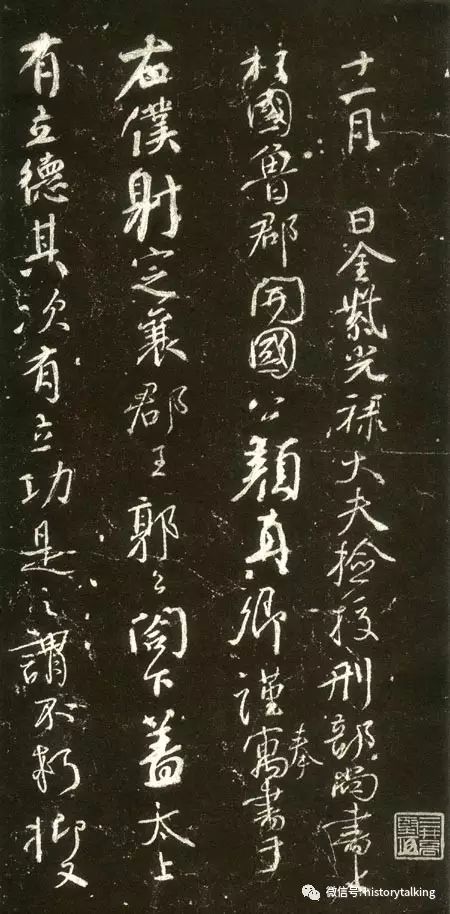 十一月 日金紫光祿大夫檢校刑部尚書上
柱國魯郡開國公顏真卿謹奉寓書于
右僕射定襄郡王郭公閣下蓋太上
有立德其次有立功是之謂不朽抑又
微信号:historytalking